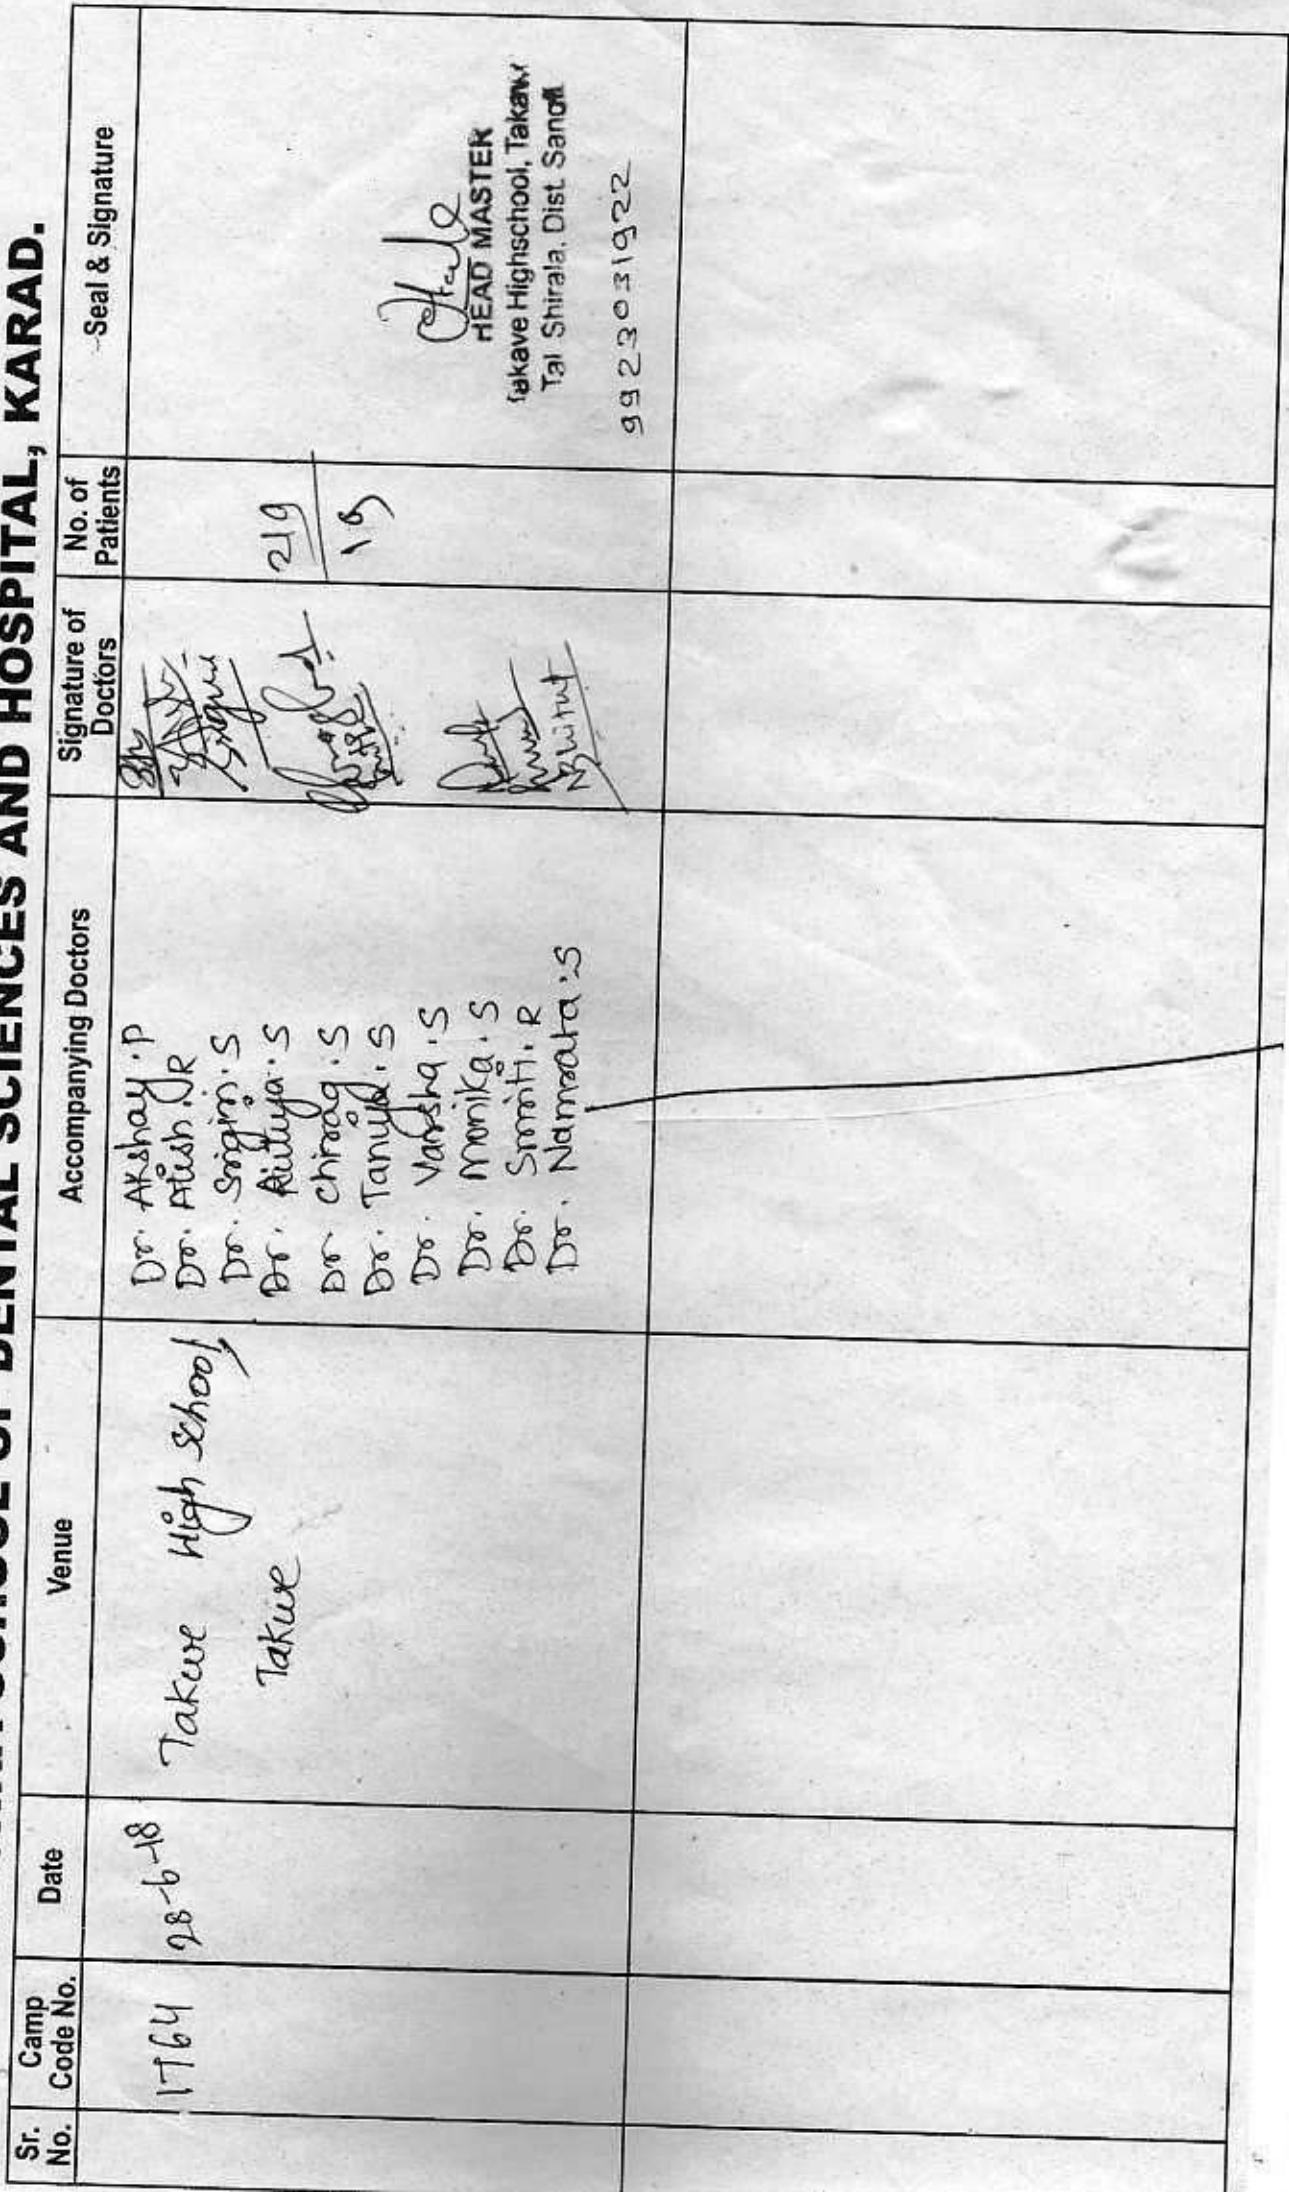 SCHOOL OF DENTAL SCIENCES AND HOSPITAL, KARAD.
Sr. No.
Camp Code No.
Date
Venue
Accompanying Doctors
Signature of Doctors
No. of Patients
Seal & Signature
1764
28-6-18
Takwe High School,
Takwe
Dr. Akshay . P
Dr. Atish . R
Dr. Srigiri . S
Dr.
Dr. Chirag . S
Dr. Tanuja . S
Dr. Varsha . S
Dr. Monika . S
Dr. Smriti . R
Dr. Namrata . S
219
19
HEAD MASTER
Takave Highschool, Takawe
Tal Shirala, Dist. Sangli
9923031922